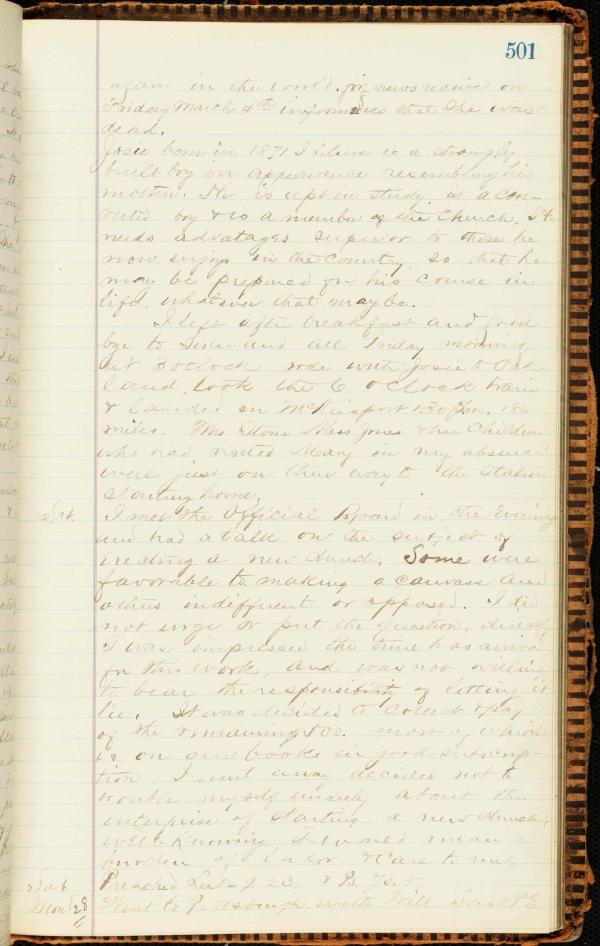 501
again in the world, for news received on
Friday March 4th informs us that she was
dead.
Josie born in 1871 I believe is a strongly
built boy in appearance resembling his
mother. He is apt in study is a con-
verted boy & is a member of the Church. He
needs advatages superior to those he
now enjoys in the country, so that he
may be prepared for his course in
life, whatever that may be.
I left after breakfast and good
bye to and all Friday morning
at 3 oclock rode with Josie to Oak-
land. took the 6 oclock train
& landed in McKeesport 1.30 P.m. 186
miles. Mrs Stone Miss Jones & her Children
who had visited Mary in my absence
were just on their way to the Station
starting home.
Sat. I met the Official Board in the Evening
and had a talk on the subject of
erecting a new church. Some were
favorable to making a canvass and
others indifferent or opposed. I did
not urge or put the question, directly
I was impressed the time has arrived
for this work, and was not willing
to bear the responsibility of letting it
lie. It was decided to collect & pay
of the remaining 500. most of which
is on our books in good subscrip-
tion. I went away decided not to
trouble myself unduly about the
interprise of starting a new church,
well knowing it would mean a
burden of labor & care to me.
Preached Luke 9.23. & Ps. 73.
Mon 28 Went to with Will. Saw